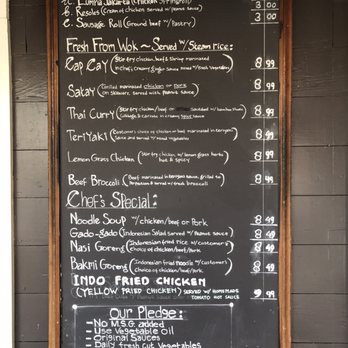 Lumpia Jakarta (Chicken Springroll)
B. Resoles (Cream of chicken served w/ peanut sauce) 3 00
C. Sausage Roll (Ground beef w/ pastry) 3 00
Fresh From Wok ~ Served w/ Steam rice:
Cap Cay (Stir fry chicken, beef & shrimp marinated 8.99
Satay (Grilled marinated chicken or pork 8.99
on skewers, served with peanut sauce)
Thai Curry (Stir fry chicken/beef or 8.99
cabbage & carrots in creamy spice sauce)
TeriYaki (Customer's choice of chicken or beef marinated in teriyaki 8.99
sauce and served w/ mixed vegetables)
Lemon Grass Chicken (Stir fry chicken w/ lemon grass herbs 8.99
hot & spicy)
Beef Broccoli (Beef marinated in teriyaki sauce, grilled to 8.99
perfection & served w/ fresh broccoli)
Chef's Special:
Noodle Soup w/ chicken/beef or Pork 8.49
Gado-gado (Indonesian Salad served w/ Peanut sauce) 8.49
Nasi Goreng (Indonesian fried rice w/ customer's 8.49
choice of chicken/beef/pork)
Bakmi Goreng (Indonesian fried noodle w/ customer's 8.49
choice of chicken/beef/pork)
INDO FRIED CHICKEN
(YELLOW FRIED CHICKEN) SERVED w/ HOMEMADE 9.99
TOMATO HOT SAUCE
Our Pledge:
- No M.S.G. added
- Use Vegetable Oil
- Original Sauces
- Daily fresh cut Vegetables